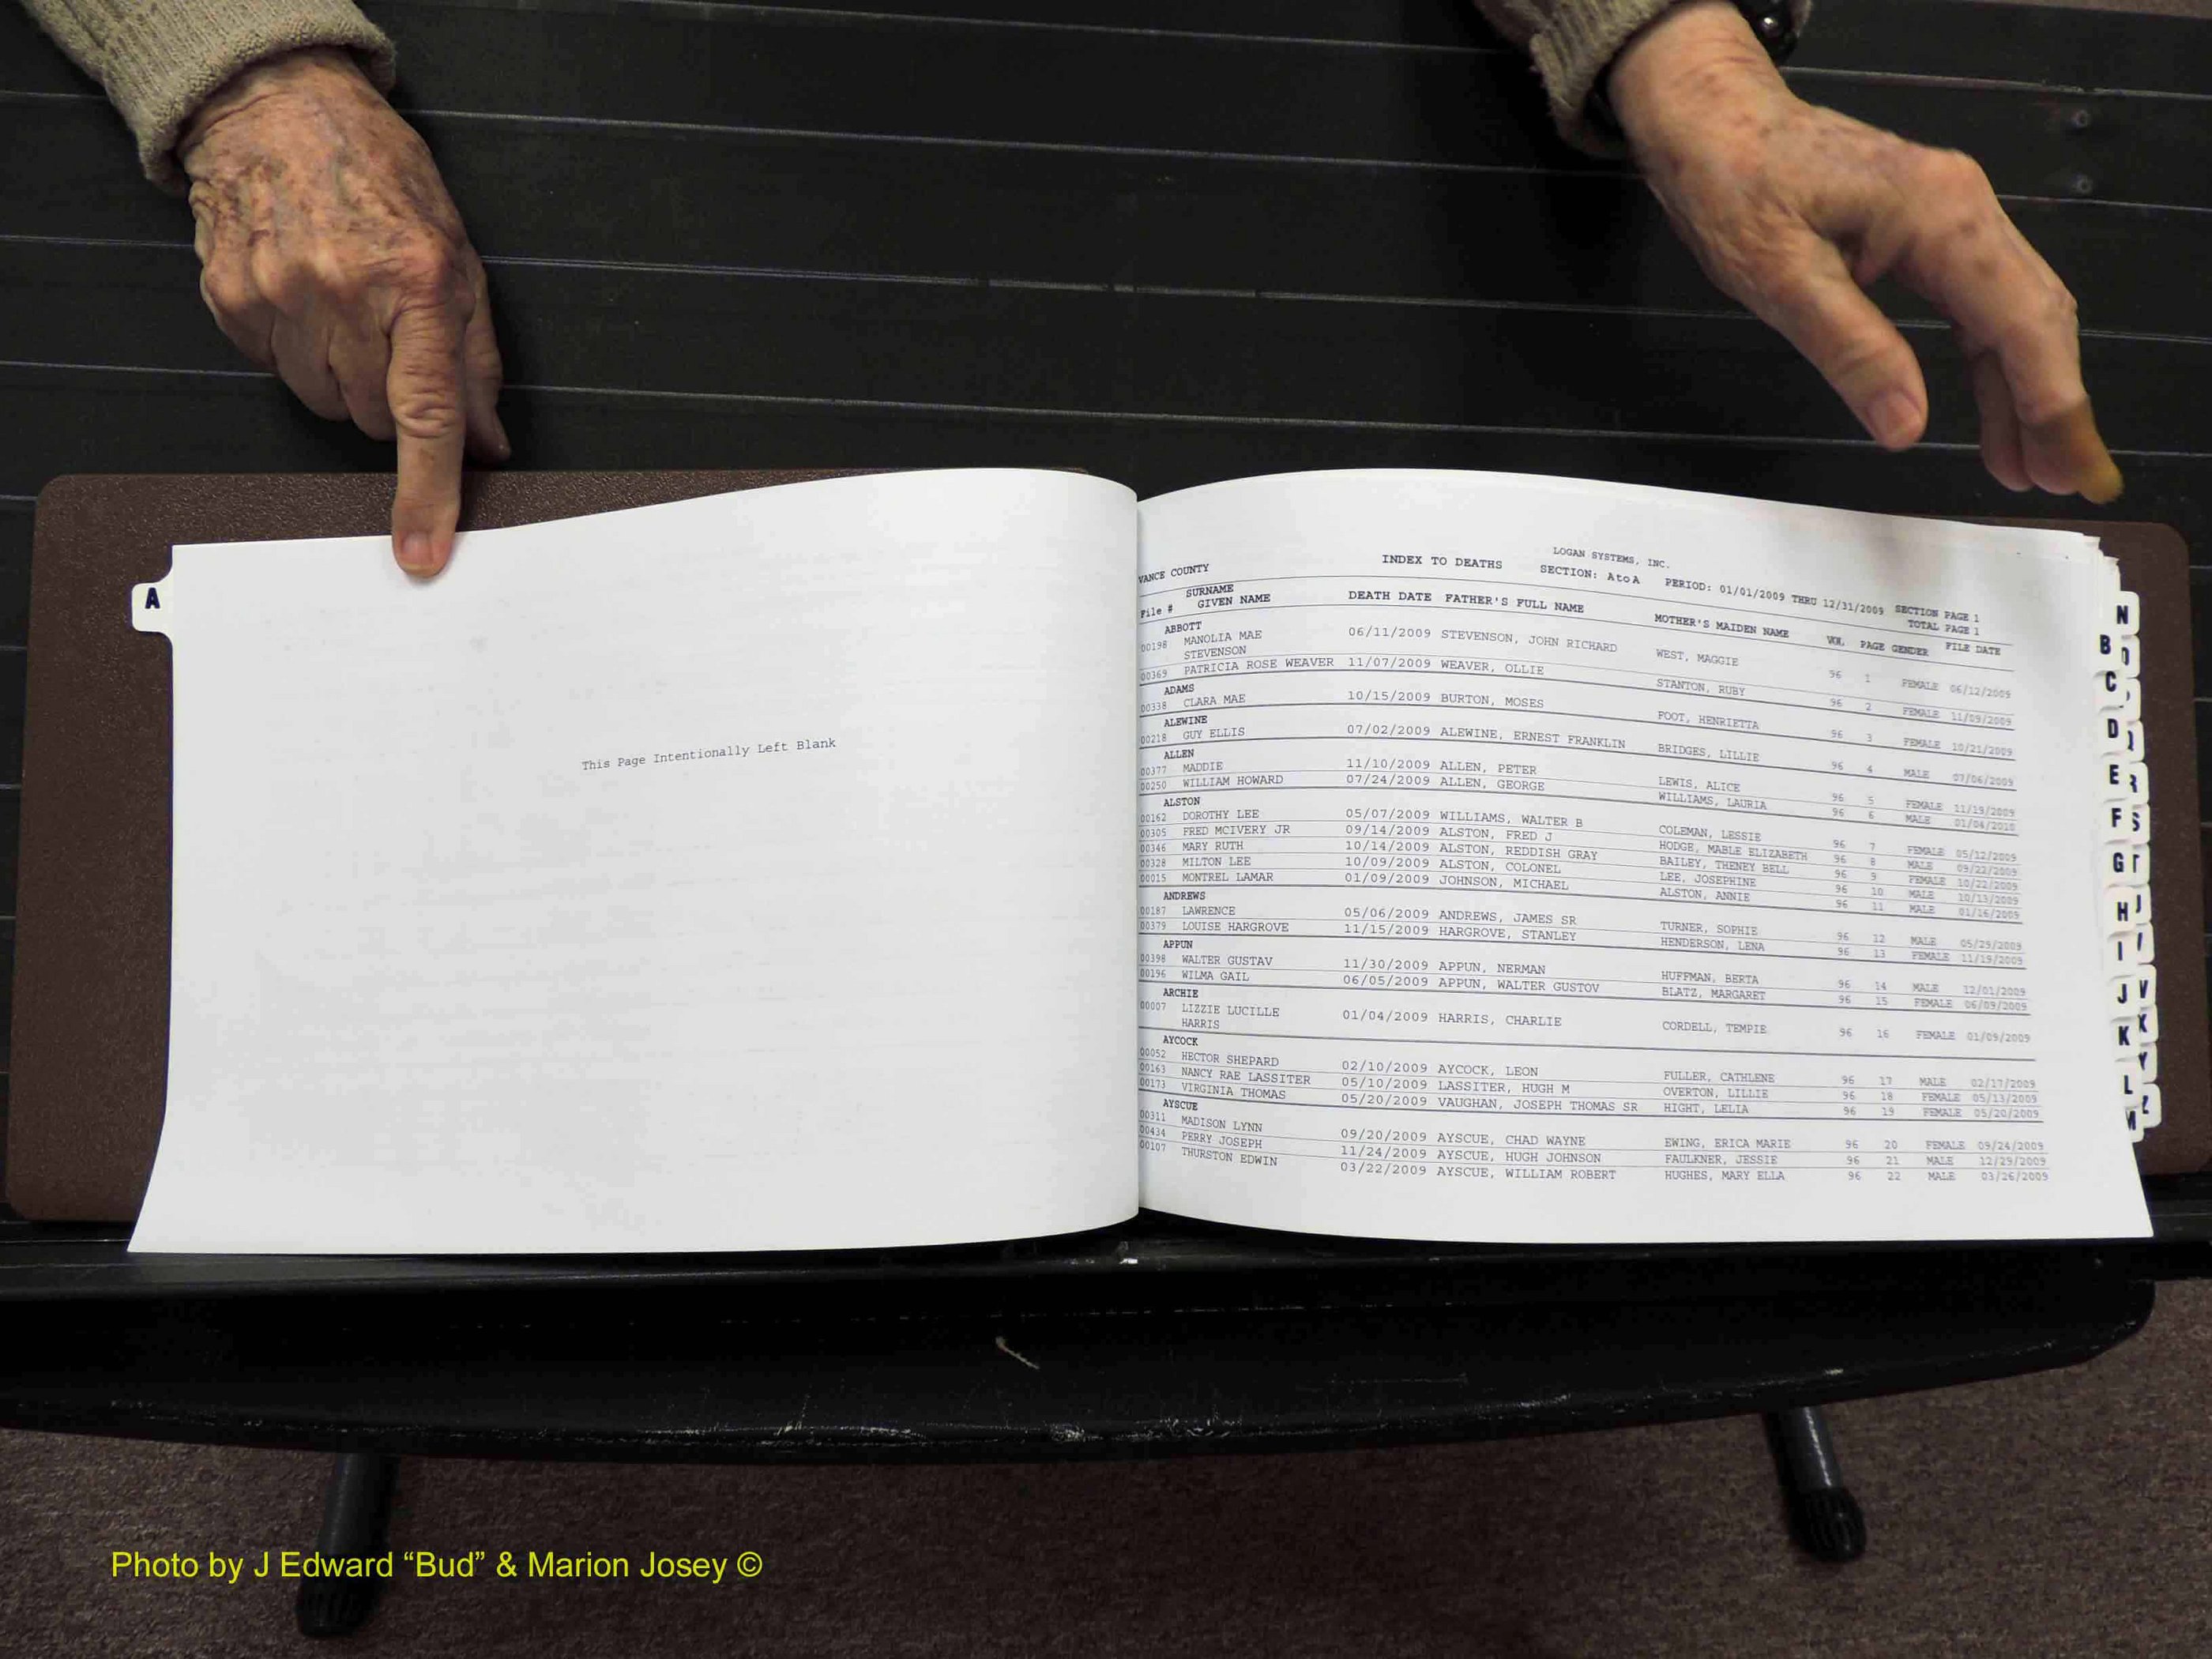 A
This Page Intentionally Left Blank
LOGAN SYSTEMS, INC.
VANCE COUNTY INDEX TO DEATHS SECTION: A to A PERIOD: 01/01/2009 THRU 12/31/2009 SECTION PAGE 1
TOTAL PAGE 1
SURNAME
File # GIVEN NAME DEATH DATE FATHER'S FULL NAME MOTHER'S MAIDEN NAME VOL PAGE GENDER FILE DATE
ABBOTT
00198 MANOLIA MAE 06/11/2009 STEVENSON, JOHN RICHARD WEST, MAGGIE 96 1 FEMALE 06/12/2009
STEVENSON
00369 PATRICIA ROSE WEAVER 11/07/2009 WEAVER, OLLIE STANTON, RUBY 96 2 FEMALE 11/09/2009
ADAMS
00338 CLARA MAE 10/15/2009 BURTON, MOSES FOOT, HENRIETTA 96 3 FEMALE 10/21/2009
ALEWINE
00218 GUY ELLIS 07/02/2009 ALEWINE, ERNEST FRANKLIN BRIDGES, LILLIE 96 4 MALE 07/06/2009
ALLEN
00377 MADDIE 11/10/2009 ALLEN, PETER LEWIS, ALICE 96 5 FEMALE 11/19/2009
00250 WILLIAM HOWARD 07/24/2009 ALLEN, GEORGE WILLIAMS, LAURIA 96 6 MALE 01/04/2010
ALSTON
00162 DOROTHY LEE 05/07/2009 WILLIAMS, WALTER B COLEMAN, LESSIE 96 7 FEMALE 05/12/2009
00305 FRED MCIVERY JR 09/14/2009 ALSTON, FRED J HODGE, MABLE ELIZABETH 96 8 MALE 09/22/2009
00346 MARY RUTH 10/14/2009 ALSTON, REDDISH GRAY BAILEY, THENEY BELL 96 9 FEMALE 10/22/2009
00328 MILTON LEE 10/09/2009 ALSTON, COLONEL LEE, JOSEPHINE 96 10 MALE 10/13/2009
00015 MONTREL LAMAR 01/09/2009 JOHNSON, MICHAEL ALSTON, ANNIE 96 11 MALE 01/16/2009
ANDREWS
00187 LAWRENCE 05/06/2009 ANDREWS, JAMES SR TURNER, SOPHIE 96 12 MALE 05/29/2009
00379 LOUISE HARGROVE 11/15/2009 HARGROVE, STANLEY HENDERSON, LENA 96 13 FEMALE 11/19/2009
APPUN
00398 WALTER GUSTAV 11/30/2009 APPUN, NERMAN HUFFMAN, BERTA 96 14 MALE 12/01/2009
00196 WILMA GAIL 06/05/2009 APPUN, WALTER GUSTOV BLATZ, MARGARET 96 15 FEMALE 06/09/2009
ARCHIE
00007 LIZZIE LUCILLE 01/04/2009 HARRIS, CHARLIE CORDELL, TEMPIE 96 16 FEMALE 01/09/2009
HARRIS
AYCOCK
00052 HECTOR SHEPARD 02/10/2009 AYCOCK, LEON FULLER, CATHLENE 96 17 MALE 02/17/2009
00163 NANCY RAE LASSITER 05/10/2009 LASSITER, HUGH M OVERTON, LILLIE 96 18 FEMALE 05/13/2009
00173 VIRGINIA THOMAS 05/20/2009 VAUGHAN, JOSEPH THOMAS SR HIGHT, LELIA 96 19 FEMALE 05/20/2009
AYSCUE
00311 MADISON LYNN 09/20/2009 AYSCUE, CHAD WAYNE EWING, ERICA MARIE 96 20 FEMALE 09/24/2009
00434 PERRY JOSEPH 11/24/2009 AYSCUE, HUGH JOHNSON FAULKNER, JESSIE 96 21 MALE 12/29/2009
00107 THURSTON EDWIN 03/22/2009 AYSCUE, WILLIAM ROBERT HUGHES, MARY ELLA 96 22 MALE 03/26/2009
N
B
C
D
E R
F S
G T
H
I
J V
K X
Y
L
M Z
Photo by J Edward “Bud” & Marion Josey ©